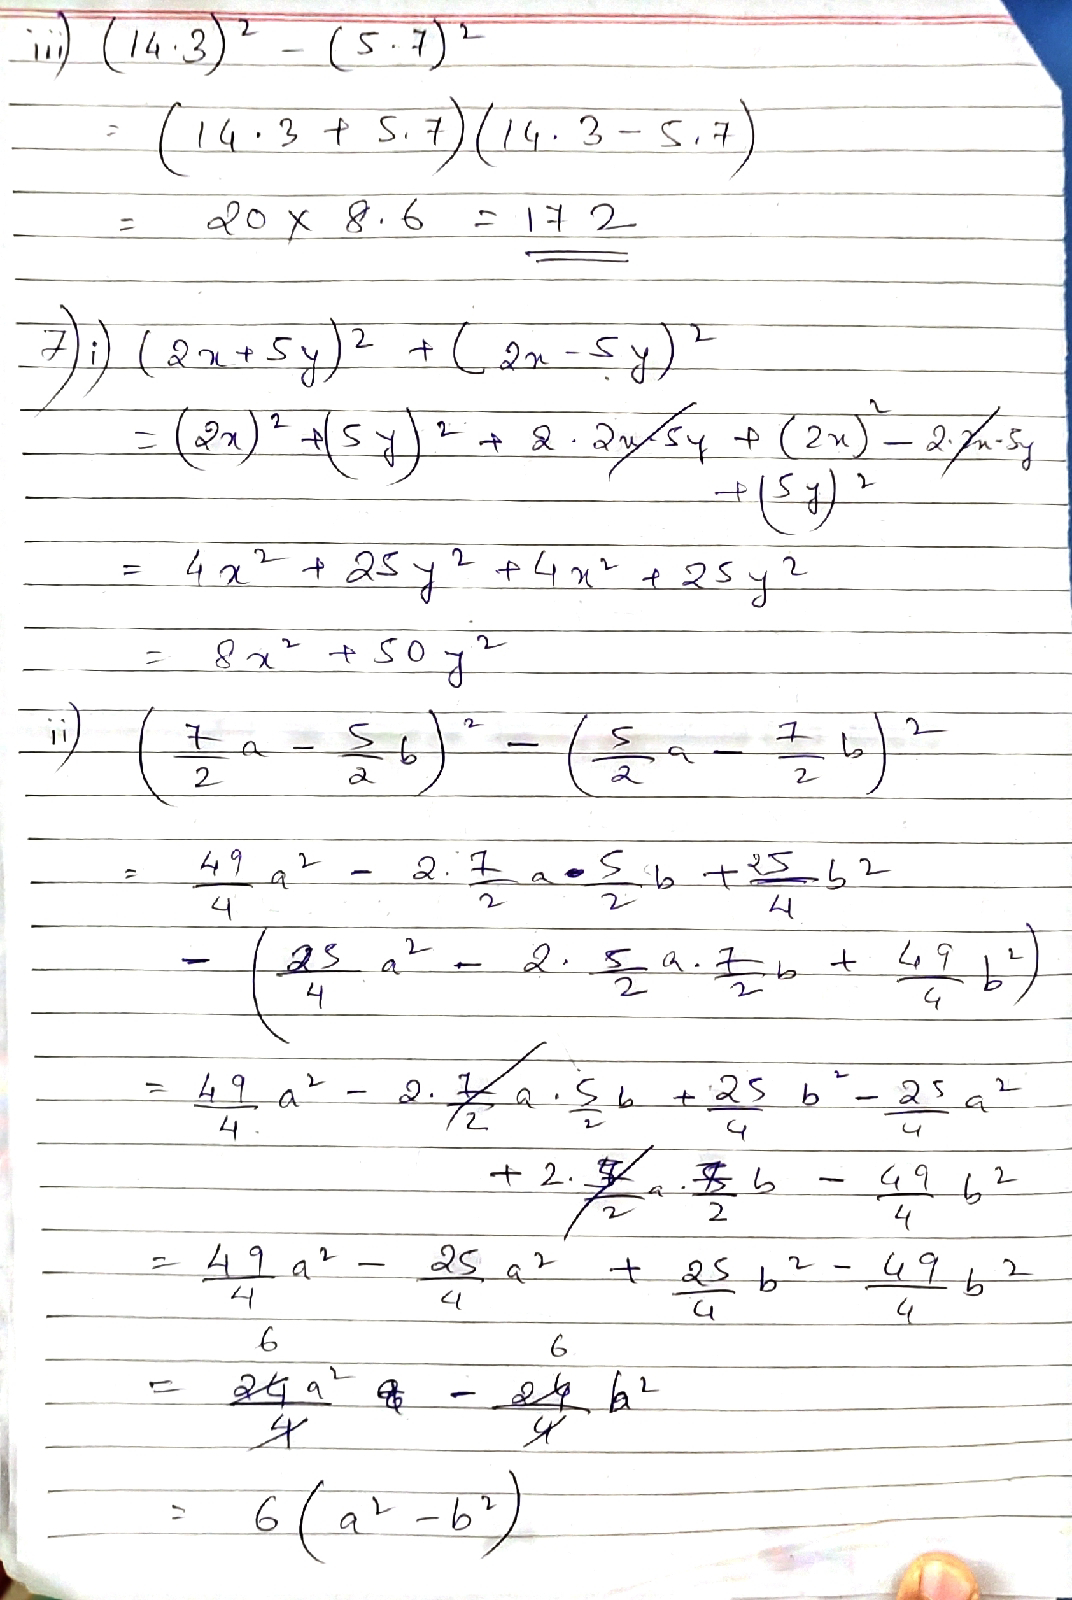 iii) (14.3)² - (5.7)²
= (14.3 + 5.7)(14.3 - 5.7)
= 20 × 8.6 = 172
7) i) (2x + 5y)² + (2x - 5y)²
= (2x)² + (5y)² + 2 . 2x . 5y + (2x)² - 2.2x.5y
+ (5y)²
= 4x² + 25y² + 4x² + 25y²
= 8x² + 50y²
ii) (7/2 a - 5/2 b)² - (5/2 a - 7/2 b)²
= 49/4 a² - 2 . 7/2 a . 5/2 b + 25/4 b²
- (25/4 a² - 2 . 5/2 a . 7/2 b + 49/4 b²)
= 49/4 a² - 2 . 7/2 a . 5/2 b + 25/4 b² - 25/4 a²
+ 2 . 7/2 a . 5/2 b - 49/4 b²
= 49/4 a² - 25/4 a² + 25/4 b² - 49/4 b²
6 6
= 24/4 a² - 24/4 b²
= 6 (a² - b²)